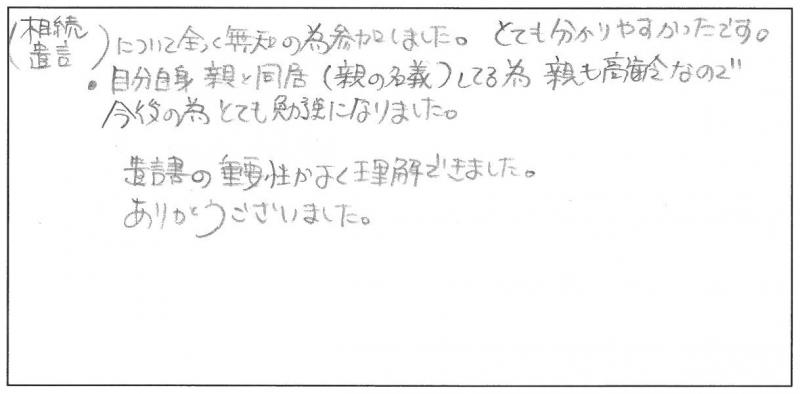 (相続
遺言)について全く無知の為参加しました。 とても分かりやすかったです。
・自分自身 親と同居(親の名義)してる為 親も高齢なので
今後の為とても勉強になりました。
遺言書の重要性がよく理解できました。
ありがとうございました。